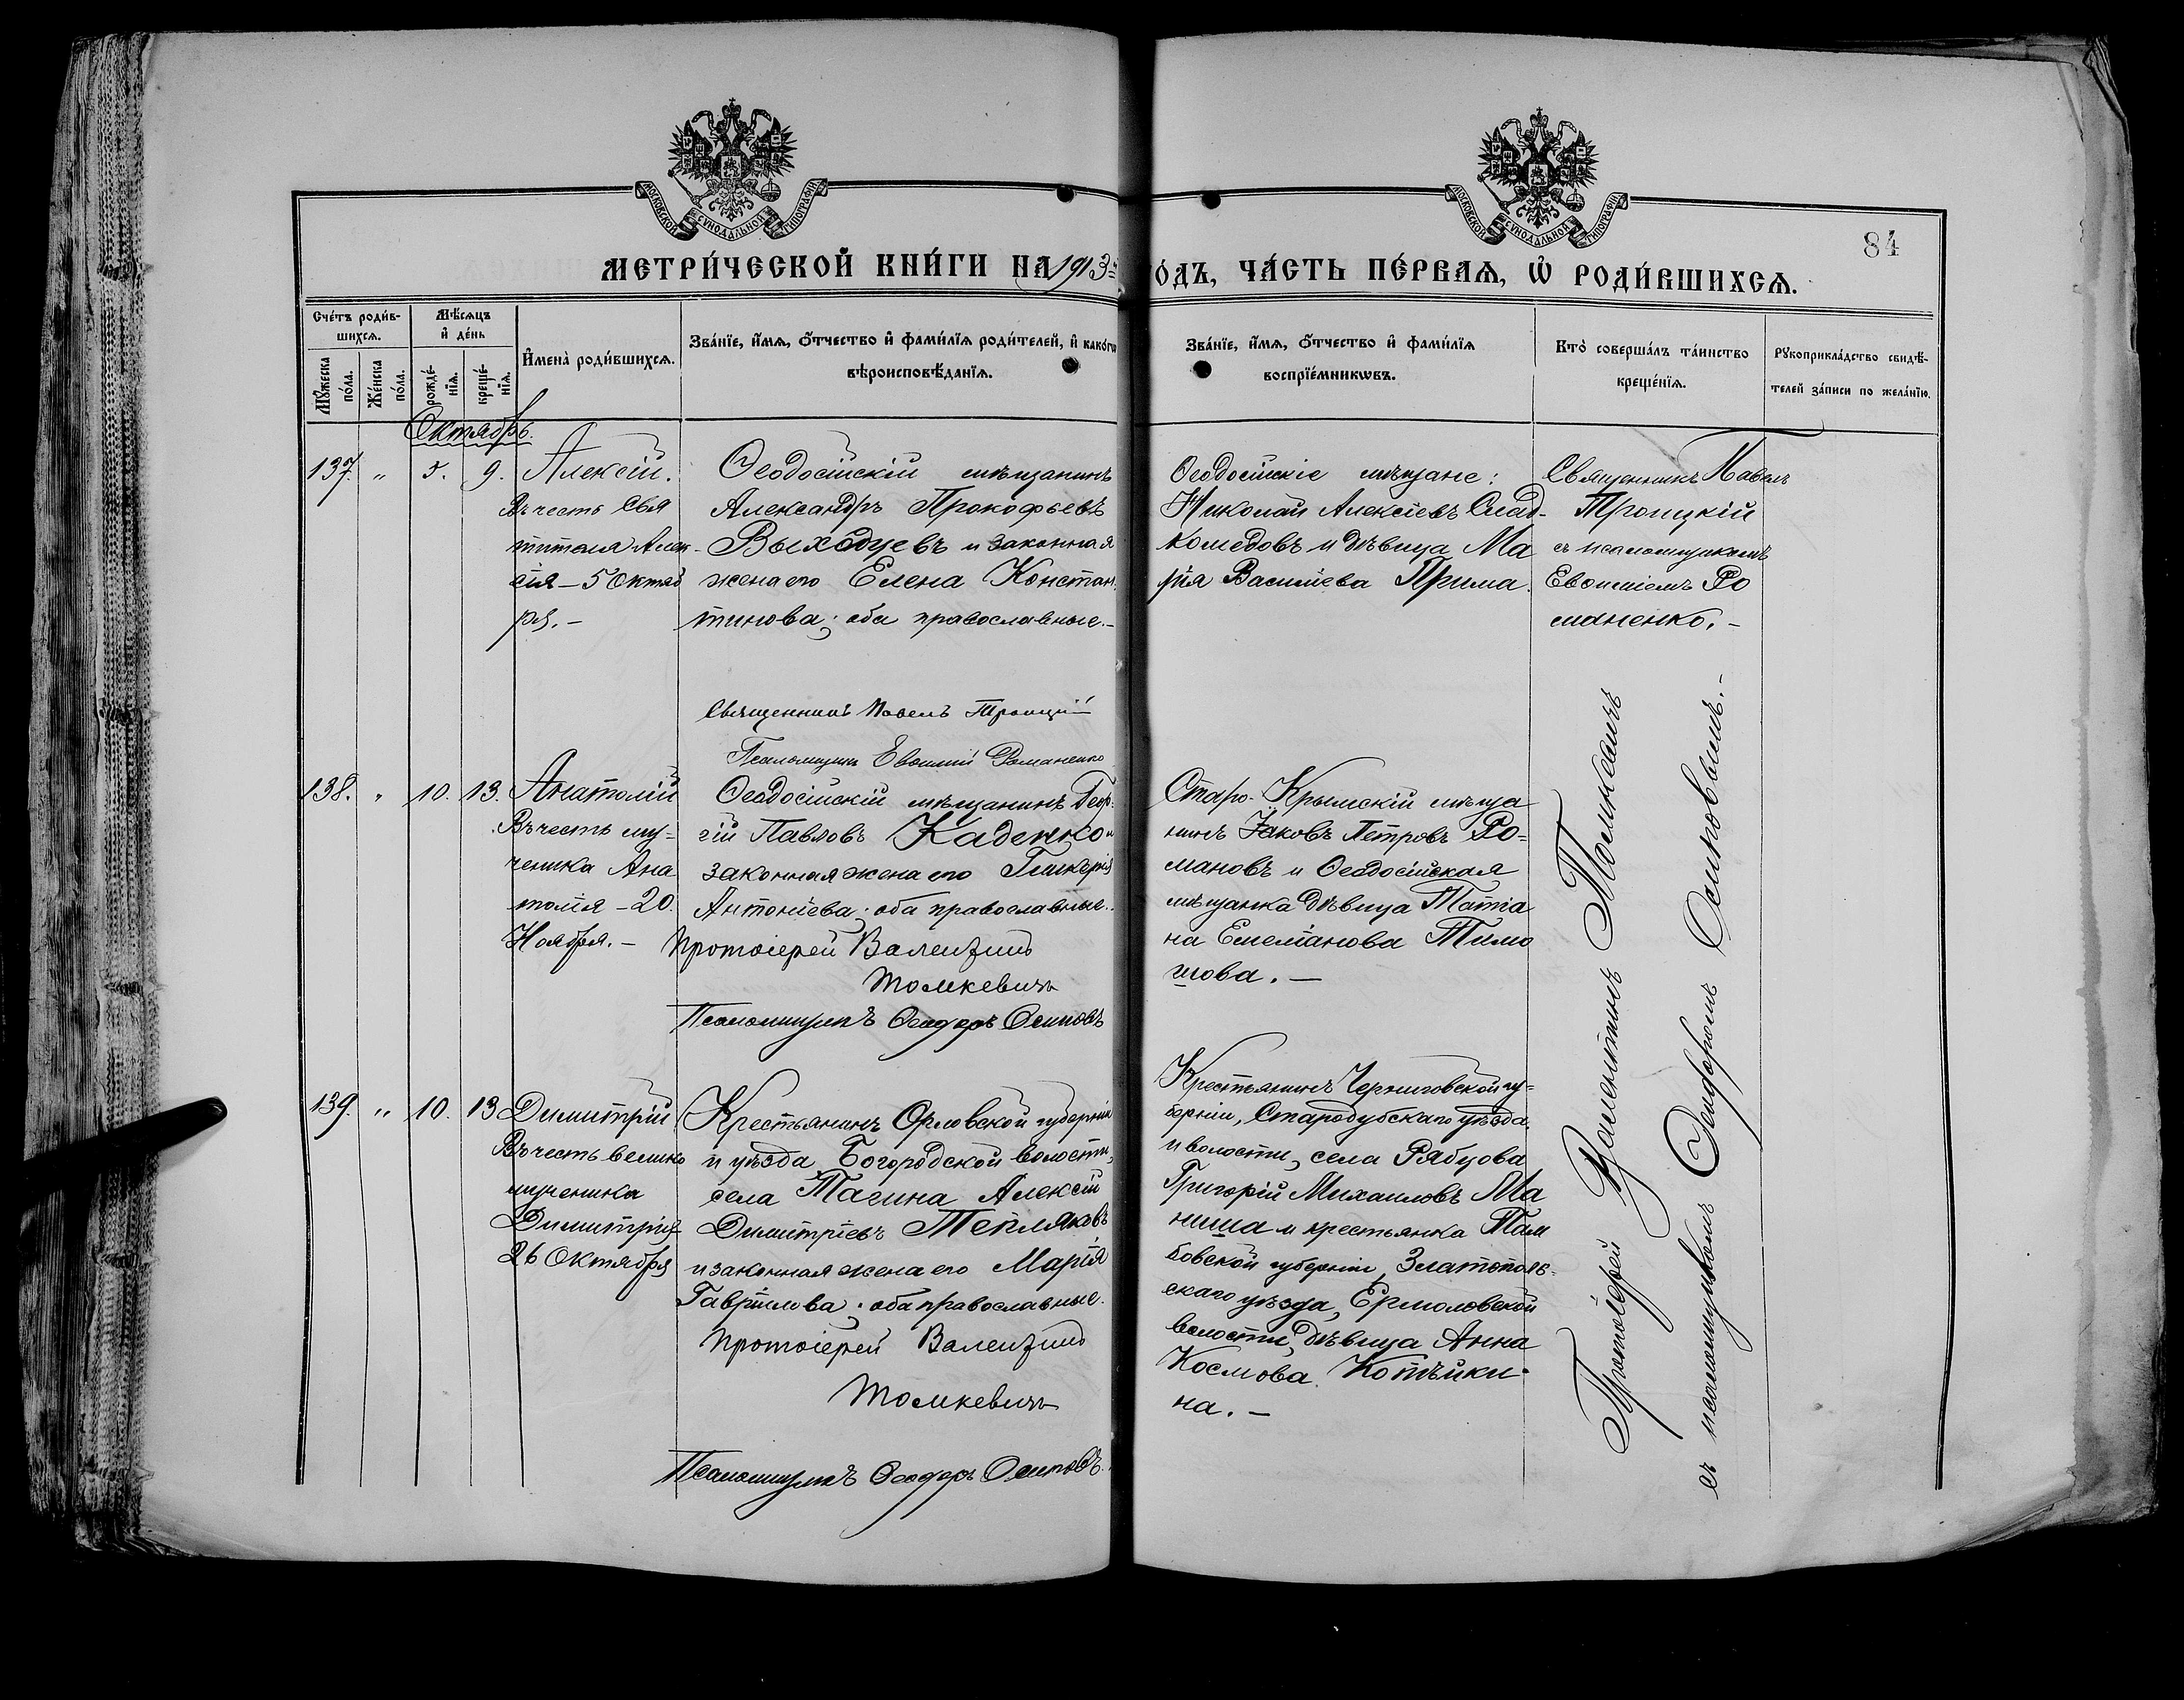 МОСКОВСКОЙ СѴНОДАЛЬНОЙ ТИПОГРАФІИ
МОСКОВСКОЙ СѴНОДАЛЬНОЙ ТИПОГРАФІИ
84
МЕТРИ́ЧЕСКОЙ КНИ́ГИ НА 1913 ГО́ДЪ, ЧА́СТЬ ПЕ́РВАѦ, Ѡ҆ РОДИ́ВШИХСѦ.
Сче́тъ роди́в-
шихсѧ.
Мѣ́сѧцъ
и҆ де́нь
Мꙋ́жеска по́ла.
Же́нска по́ла.
рожде́-нїѧ.
креще́-нїѧ.
И҆мена̀ роди́вшихсѧ.
Зва́нїе, и҆́мѧ, ѻ҆́тчество и҆ фами́лїѧ роди́телей, и҆ како́гѡ
вѣроисповѣ́данїѧ.
Зва́нїе, и҆́мѧ, ѻ҆́тчество и҆ фами́лїѧ
воспрїе́мникѡвъ.
Кто̀ соверша́лъ та́инство
креще́нїѧ.
Рꙋкоприкла́дство свидѣ́-
телей за́писи по жела́нїю.
Октябрь.
137. " 5. 9.
Алексій.
Въ честь Свя
тителя Алек-
сія – 5 Октяб
ря. –
Ѳеодосійскій мѣщанинъ
Александръ Прокофьевъ
Выходцевъ и законная
жена его Елена Констан
тинова; оба православные. –
Священникъ Павелъ Троицкій
Псаломщикъ Евѳимій Романенко
Ѳеодосійскіе мѣщане:
Николай Алексіевъ Слад-
комедовъ и дѣвица Ма
рія Василіева Прима.
Священникъ Павелъ
Троицкій
съ псаломщикомъ
Евѳиміемъ Ро
маненко. –
138. " 10. 13.
Анатолій
Въ честь му-
ченика Ана
толія – 20
Ноября. –
Ѳеодосійскій мѣщанинъ Геор-
гій Павловъ Каденко и
законная жена его Гликерія
Антоніева; оба православные.
Протоіерей Валентинъ
Томкевичъ
Псаломщикъ Ѳеодоръ Осиповъ
Старо-Крымскій мѣща
нинъ Іаковъ Петровъ Ро-
мановъ и Ѳеодосійская
мѣщанка дѣвица Татіа
на Емеліанова Тимо
шова. –
139. " 10. 13
Димитрій
Въ честь велико
мученика
Димитрія
26 Октября
Крестьянинъ Орловской губерніи
и уѣзда, Богородской волости,
села Тагина Алексій
Димитріевъ Тепляковъ
и законная жена его Марія
Гавріилова; оба православные.
Протоіерей Валентинъ
Томкевичъ
Псаломщикъ Ѳеодоръ Осиповъ.
Крестьянинъ Черниговской гу-
берніи, Стародубскаго уѣзда
и волости, села Рябцова
Григорій Михаиловъ Ма
ниша и крестьянка Там
бовской губерніи, Златополь-
скаго уѣзда, Ермоловской
волости, дѣвица Анна
Космова
на. –
Протоіерей Валентинъ Томкевичъ
съ псаломщикомъ Ѳеодоромъ Осиповымъ. –